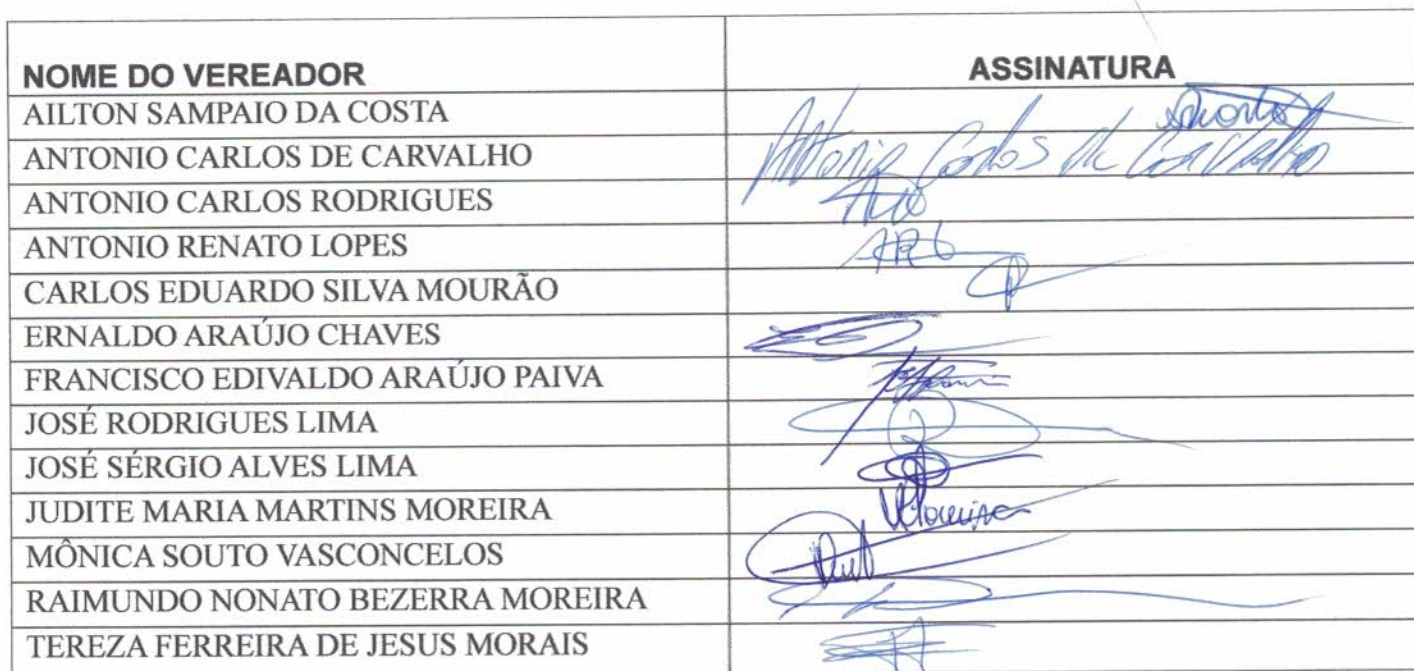 NOME DO VEREADOR ASSINATURA
AILTON SAMPAIO DA COSTA
ANTONIO CARLOS DE CARVALHO Antonio Carlos de Carvalho
ANTONIO CARLOS RODRIGUES
ANTONIO RENATO LOPES ARL
CARLOS EDUARDO SILVA MOURÃO
ERNALDO ARAÚJO CHAVES
FRANCISCO EDIVALDO ARAÚJO PAIVA
JOSÉ RODRIGUES LIMA
JOSÉ SÉRGIO ALVES LIMA
JUDITE MARIA MARTINS MOREIRA
MÔNICA SOUTO VASCONCELOS
RAIMUNDO NONATO BEZERRA MOREIRA
TEREZA FERREIRA DE JESUS MORAIS